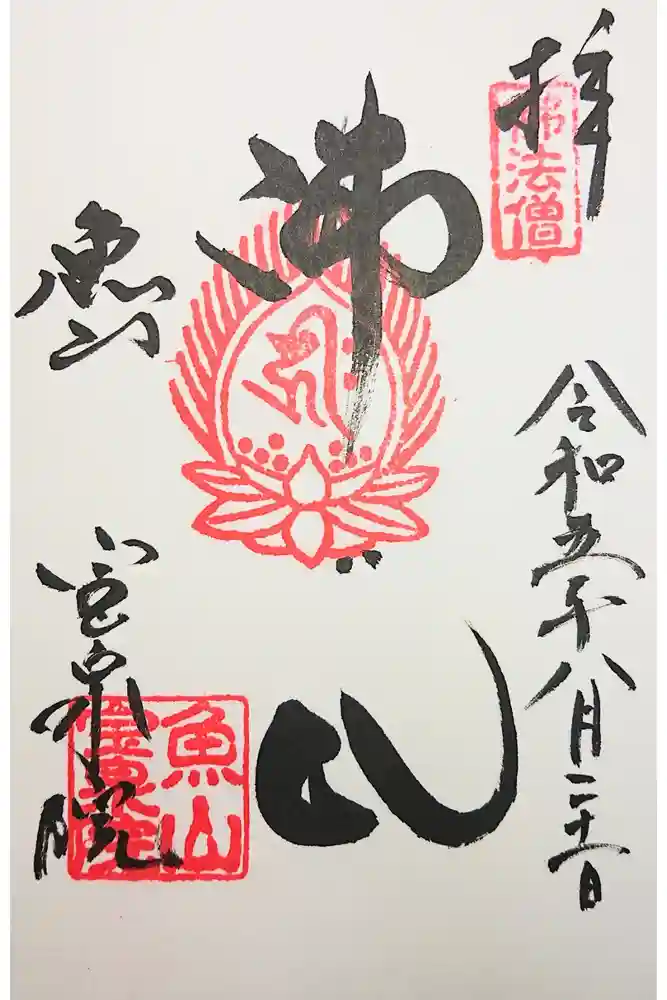 拝
佛法僧
令和五年八月二十一日
佛心
ह्रीः
魚山
宝泉院
魚山
寶泉院